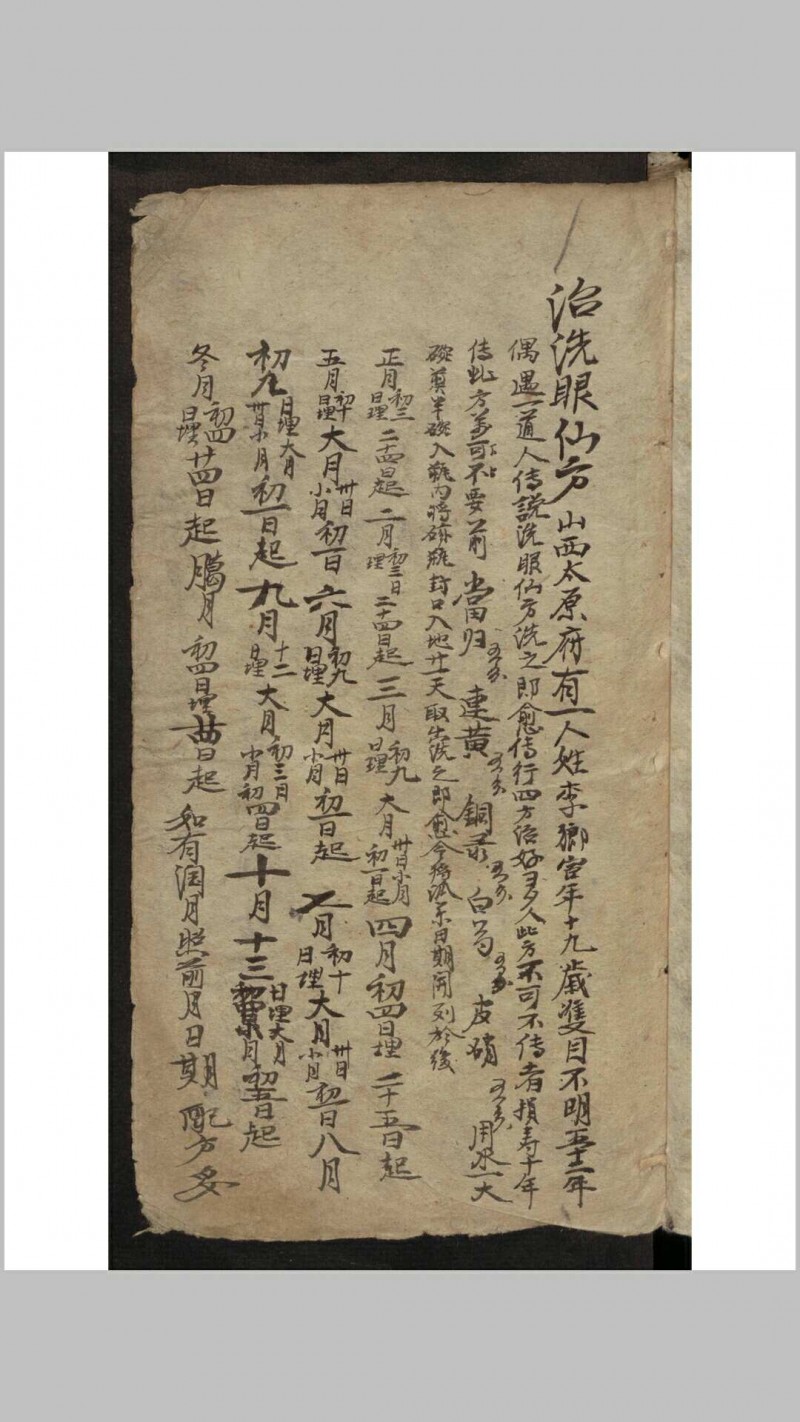 治洗眼仙方 山西太原府有一人姓李鄉宦年十九歲雙目不明五十二年
偶遇一道人传說洗眼仙方洗之即愈传行四方治好多人此方不可不传者損寿十年
传此方萬可不要前 當归 連黄 銅录 白芍 皮硝 用水一大
碗煎半碗入瓶内将瓶封口入地廿一天取出洗之即愈今将日期開列於後
正月初三日埋二十四日起 二月初三日埋二十四日起 三月初九日埋 大月卅日小月初一日起 四月初四日埋 二十五日起
五月初十日埋 大月卅日小月初一日 六月初九日埋 大月卅日小月初一日起 七月初十日埋 大月卅日小月初一日 八月
初九日埋大月卅日小月初一日起 九月十二日埋 大月初三日小月初四日起 十月十三日埋大月小月初五日起
冬月初四日埋廿四日起 臈月初四日埋廿四日起 如有润月照前月日期 配方妥